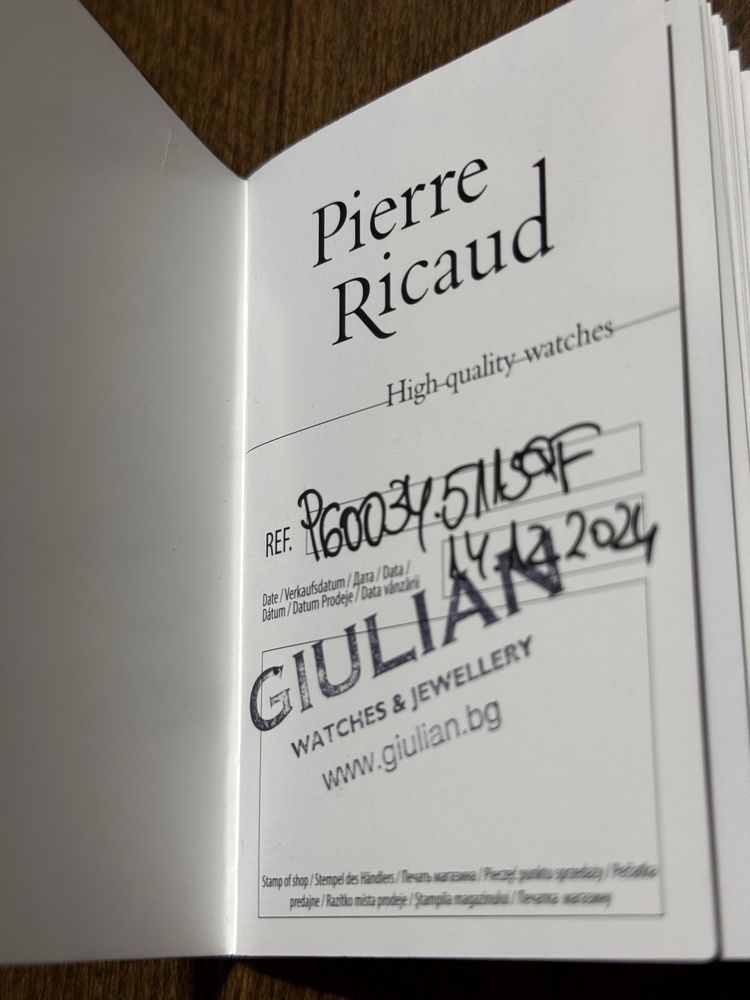 Pierre
Ricaud
High quality watches
REF. P60034.5113QF
Date / Verkaufsdatum / Дата / Data /
Dátum / Datum Prodeje / Data vânzării
14.12.2024
GIULIAN
WATCHES & JEWELLERY
www.giulian.bg
Stamp of shop / Stempel des Händlers / Печать магазина / Pieczęć punktu sprzedaży / Pečiatka
predajne / Razítko místa prodeje / Ştampila magazinului / Печатка магазину